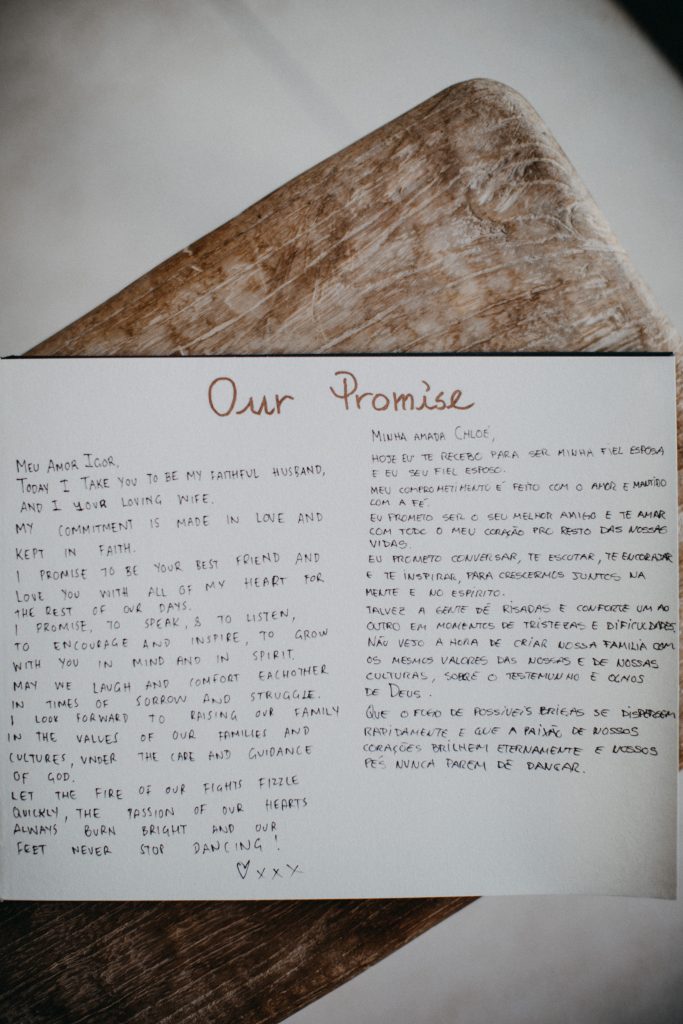 Our Promise
MEU AMOR IGOR,
TODAY I TAKE YOU TO BE MY FAITHFUL HUSBAND,
AND I YOUR LOVING WIFE.
MY COMMITMENT IS MADE IN LOVE AND
KEPT IN FAITH.
I PROMISE TO BE YOUR BEST FRIEND AND
LOVE YOU WITH ALL OF MY HEART FOR
THE REST OF OUR DAYS.
I PROMISE, TO SPEAK, & TO LISTEN,
TO ENCOURAGE AND INSPIRE, TO GROW
WITH YOU IN MIND AND IN SPIRIT.
MAY WE LAUGH AND COMFORT EACHOTHER
IN TIMES OF SORROW AND STRUGGLE.
I LOOK FORWARD TO RAISING OUR FAMILY
IN THE VALUES OF OUR FAMILIES AND
CULTURES, UNDER THE CARE AND GUIDANCE
OF GOD.
LET THE FIRE OF OUR FIGHTS FIZZLE
QUICKLY, THE PASSION OF OUR HEARTS
ALWAYS BURN BRIGHT AND OUR
FEET NEVER STOP DANCING!
♡xxx
MINHA AMADA CHLOÉ,
HOJE EU TE RECEBO PARA SER MINHA FIEL ESPOSA
E EU SEU FIEL ESPOSO.
MEU COMPROMETIMENTO É FEITO COM O AMOR E MANTIDO
COM A FÉ.
EU PROMETO SER O SEU MELHOR AMIGO E TE AMAR
COM TODO O MEU CORAÇÃO PRO RESTO DAS NOSSAS
VIDAS.
EU PROMETO CONVERSAR, TE ESCUTAR, TE ENCORAJAR
E TE INSPIRAR, PARA CRESCERMOS JUNTOS NA
MENTE E NO ESPÍRITO.
TALVEZ A GENTE DÊ RISADAS E CONFORTE UM AO
OUTRO EM MOMENTOS DE TRISTEZAS E DIFICULDADES.
NÃO VEJO A HORA DE CRIAR NOSSA FAMILIA COM
OS MESMOS VALORES DAS NOSSAS E DE NOSSAS
CULTURAS, SOBRE O TESTEMUNHO E OLHOS
DE DEUS.
QUE O FOGO DE POSSÍVEIS BRIGAS SE DISPERSEM
RAPIDAMENTE E QUE A PAIXÃO DE NOSSOS
CORAÇÕES BRILHEM ETERNAMENTE E NOSSOS
PÉS NUNCA PAREM DE DANÇAR.